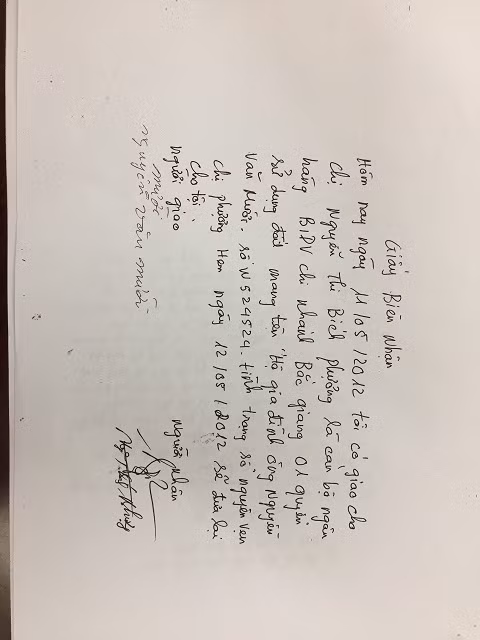 Giấy Biên Nhận
Hôm nay ngày 11/05/2012 tôi có giao cho
chị Nguyễn Thị Bích Phượng là cán bộ ngân
hàng BIDV chi nhánh Bắc giang 01 quyển
sử dụng đất mang tên "Hộ gia đình ông Nguyễn
Văn Mười. số W524524. tình trạng sổ nguyên vẹn
chị phượng Hẹn ngày 12/05/2012 sẽ đưa lại
cho tôi.
Người giao
mười
nguyễn văn mười
Người nhận